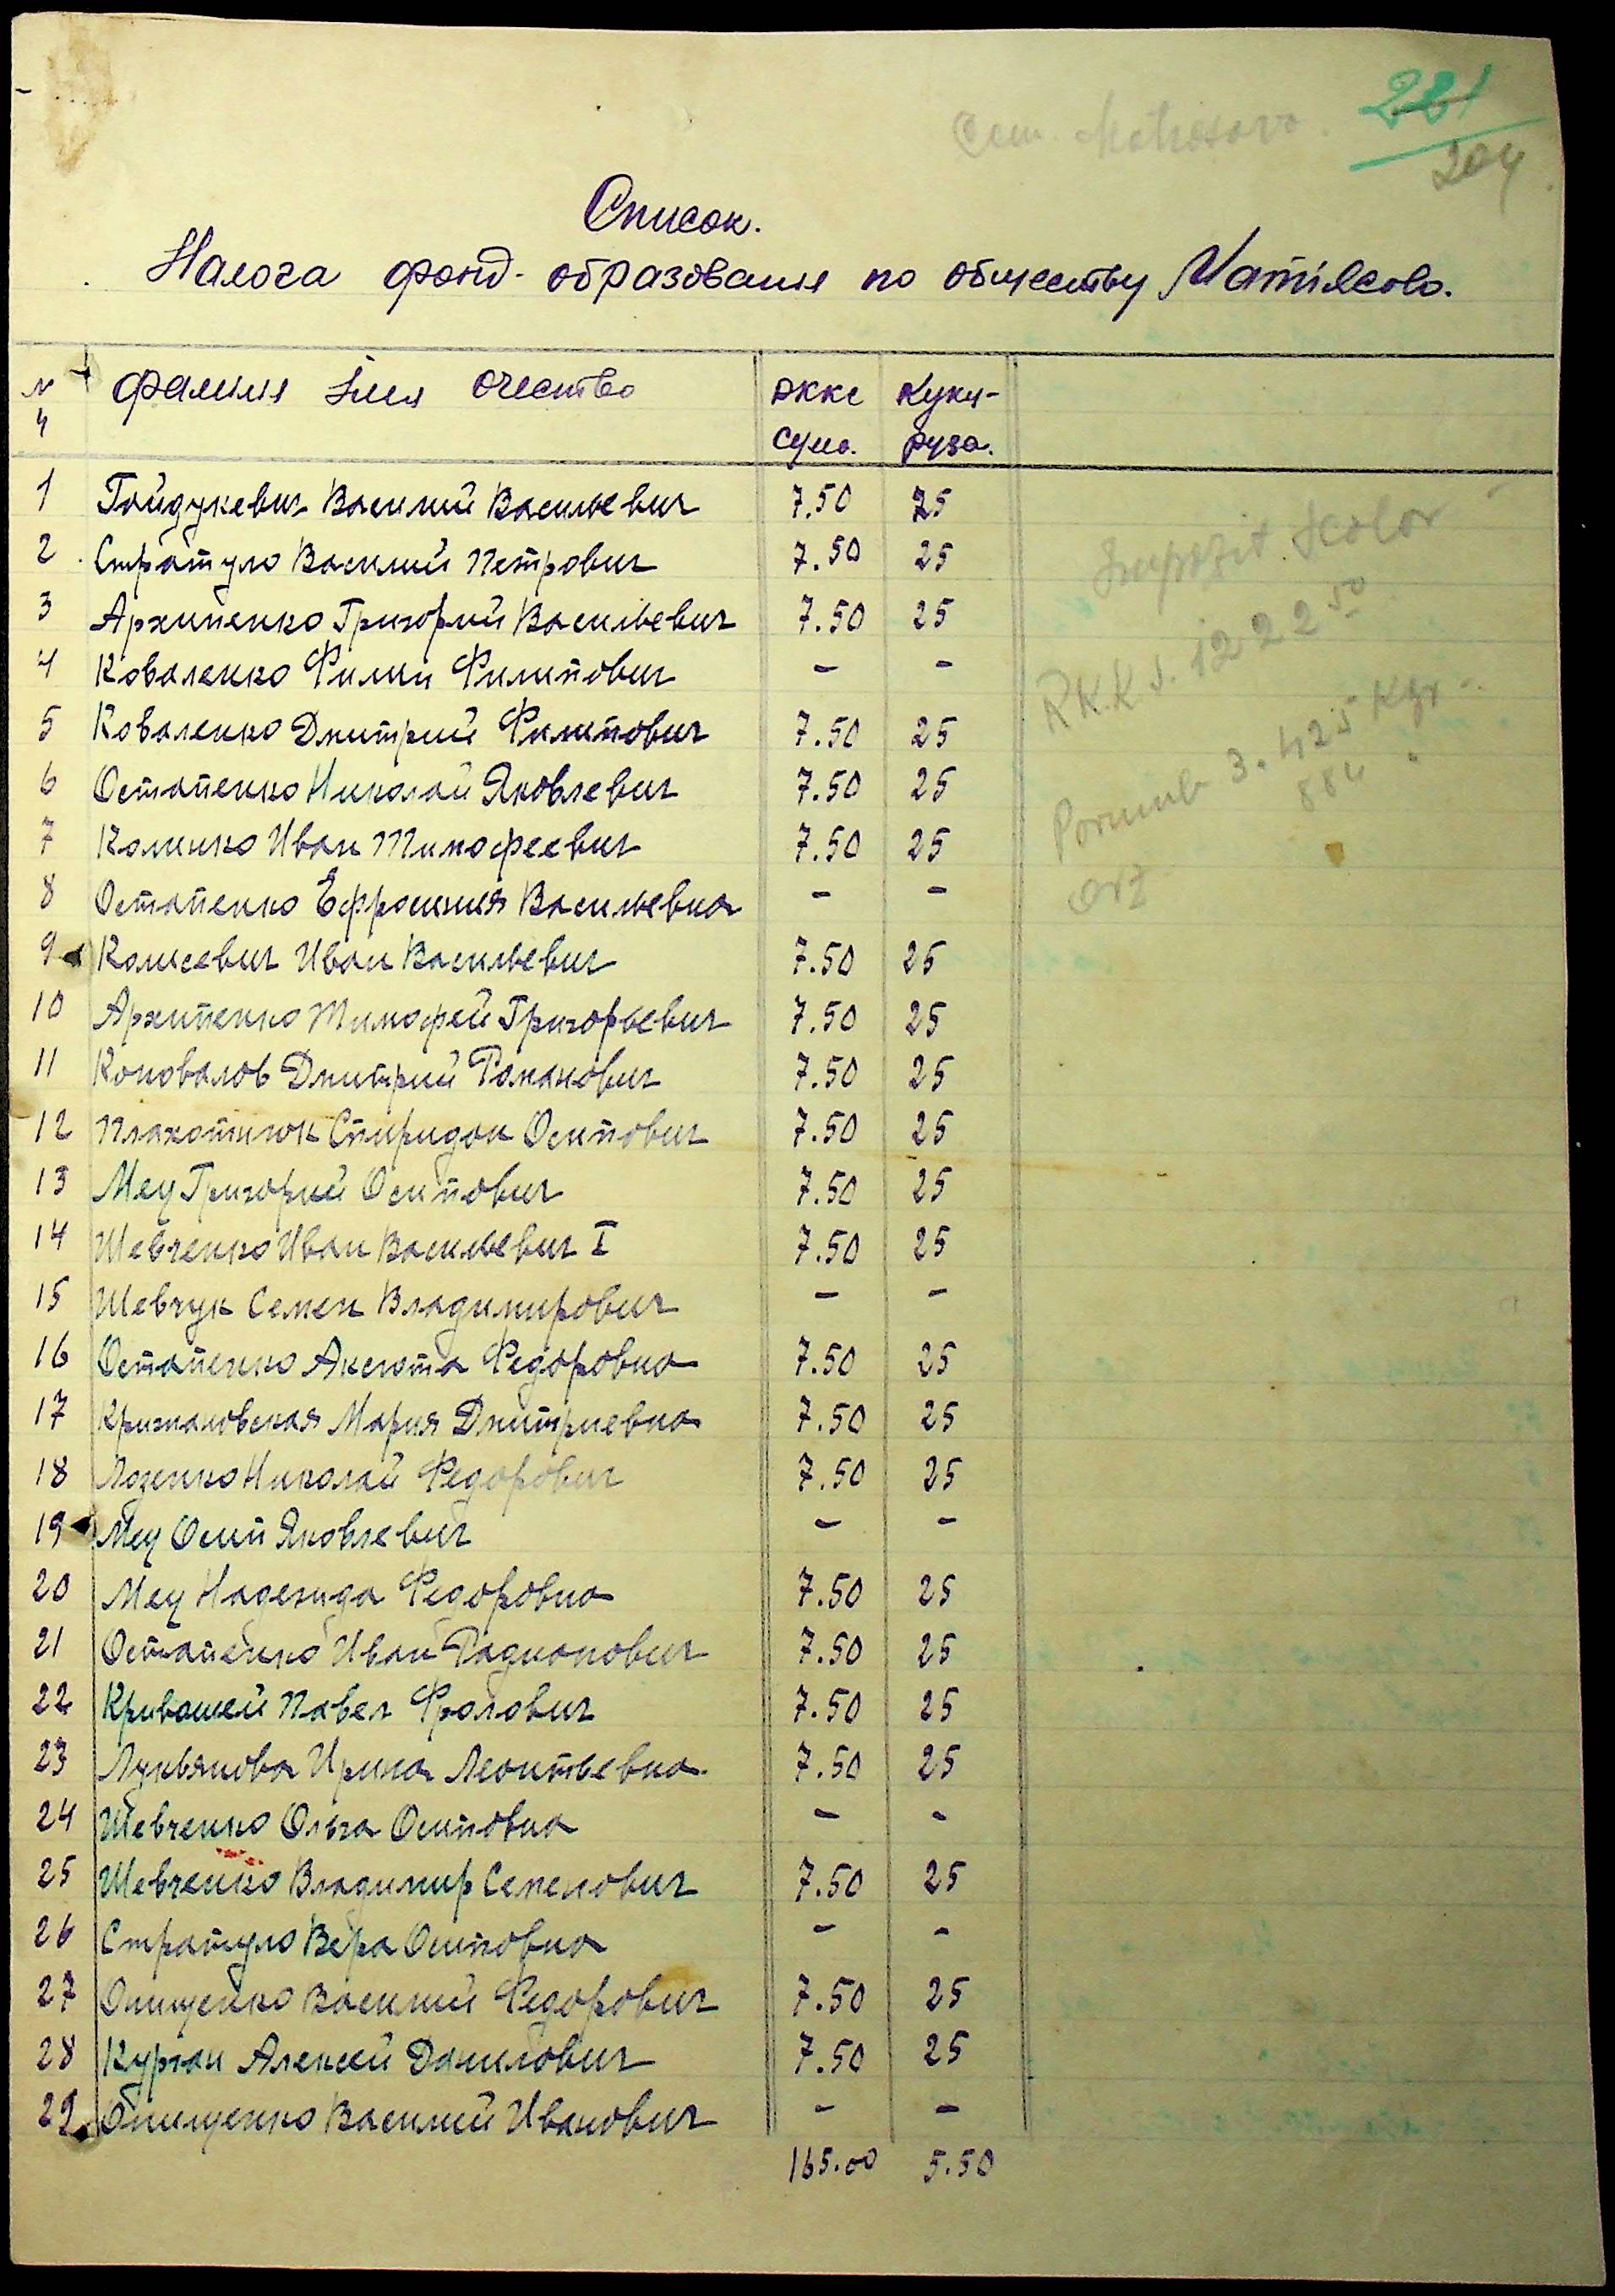 Com. Matrosovo.
221
204
Список.
Налога фонд-образования по обществу Vamilcolo.
N ч фамилия Імя очество ркке сума. Куку-руза.
1 Гойдукевич Василий Васильевич 7.50 25
2 Стратуло Василий Петрович 7.50 25
3 Архипенко Григорий Васильевич 7.50 25
4 Коваленко Филип Филипович – –
5 Коваленко Дмитрий Филипович 7.50 25
6 Остапенко Николай Яковлевич 7.50 25
7 Калинко Иван Тимофеевич 7.50 25
8 Остапенко Ефросиния Васильевна – –
9 Иван Васильевич 7.50 25
10 Архипенко Тимофей Григорьевич 7.50 25
11 Коновалов Дмитрий Романович 7.50 25
12 Плахотнюк Спиридон Осипович 7.50 25
13 Мец Григорий Осипович 7.50 25
14 Шевченко Иван Васильевич I 7.50 25
15 Шевчук Семен Владимирович – –
16 Остапенко Аксюта Федоровна 7.50 25
17 Крижановская Мария Дмитриевна 7.50 25
18 Лозенко Николай Федорович 7.50 25
19 Мец Осип Яковлевич – –
20 Мец Надежда Федоровна 7.50 25
21 Остапенко Иван Радионович 7.50 25
22 Кривошей Павел Фролович 7.50 25
23 Лукьянова Ирина Леонтьевна 7.50 25
24 Шевченко Ольга Осиповна – –
25 Шевченко Владимир Семенович 7.50 25
26 Стратуло Вера Осиповна – –
27 Онищенко Василий Федорович 7.50 25
28 Курган Алексей Данилович 7.50 25
29 Онищенко Василий Иванович – –
165.00 5.50
Impozit Scolar
RKKS. 1222 50
Porumb 3.425 Kgr.
Orz 884